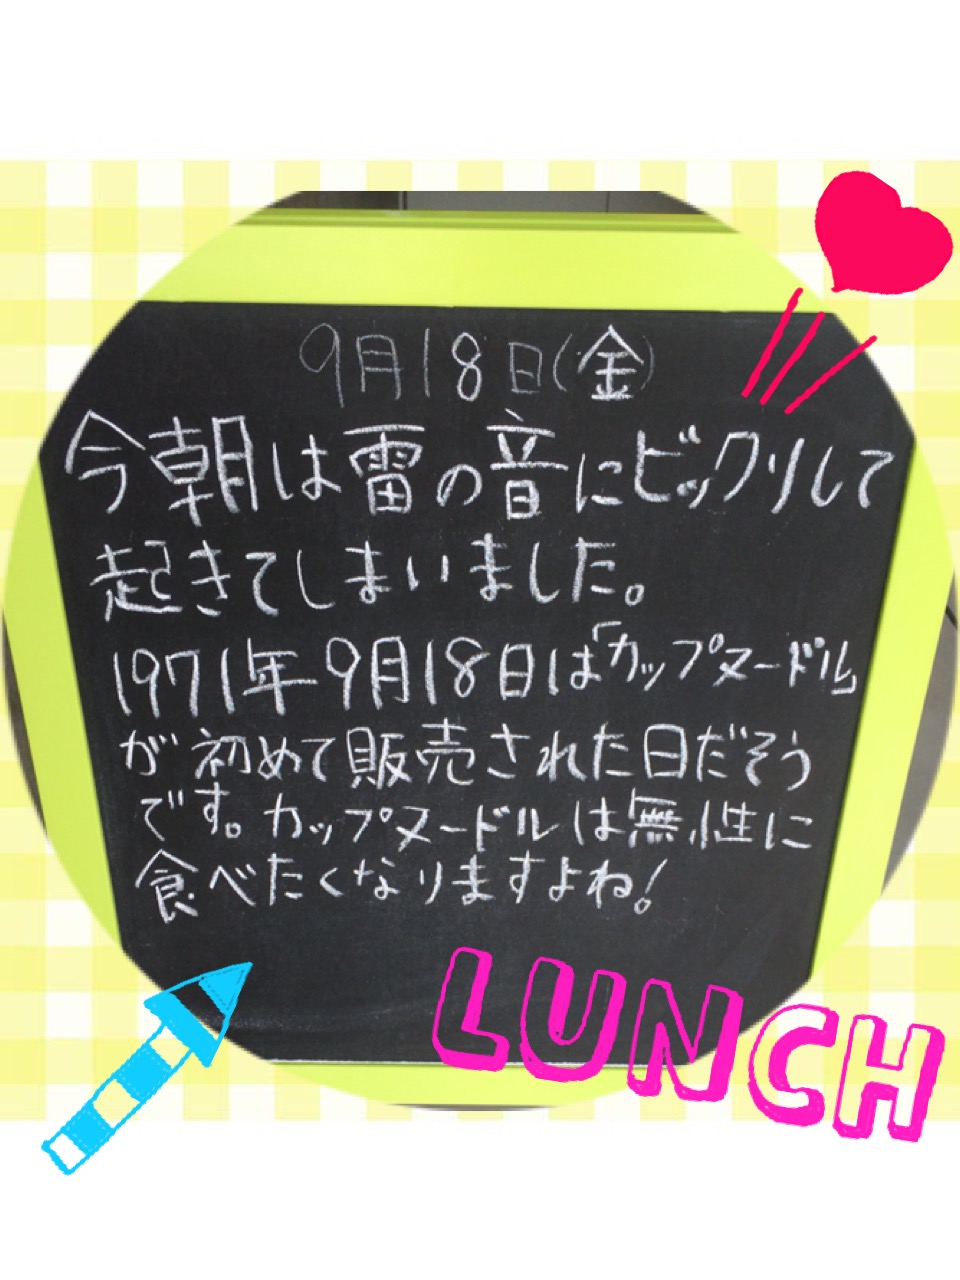 9月18日(金)
今朝は雷の音にビックリして
起きてしまいました。
1971年9月18日は「カップヌードル」
が初めて販売された日だそう
です。カップヌードルは無性に
食べたくなりますよね!
LUNCH